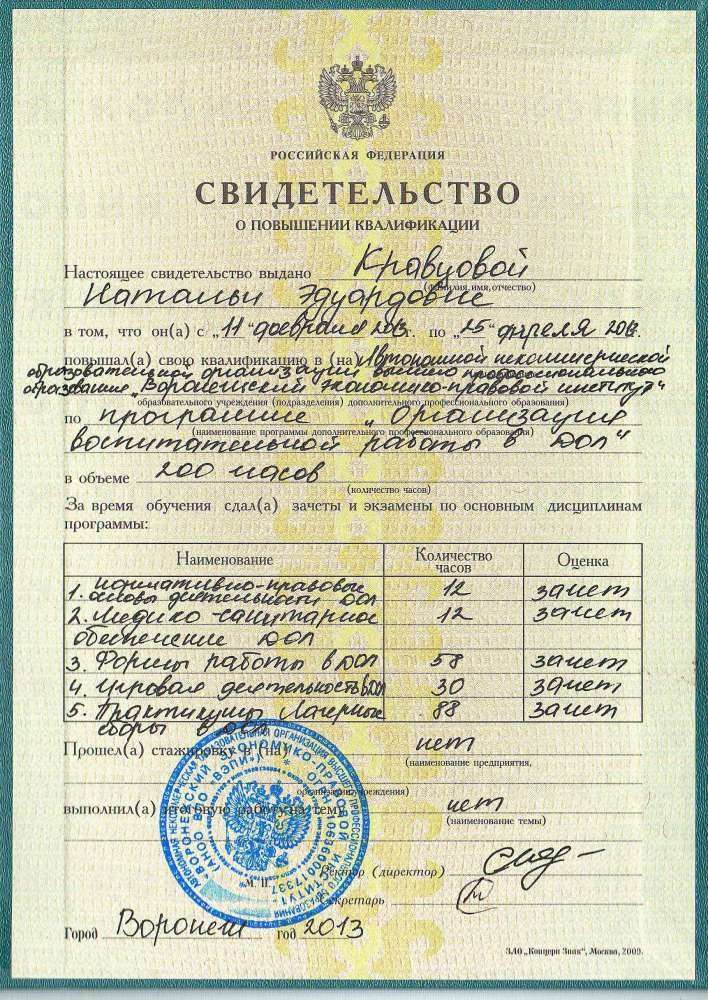 РОССИЙСКАЯ ФЕДЕРАЦИЯ
СВИДЕТЕЛЬСТВО
О ПОВЫШЕНИИ КВАЛИФИКАЦИИ
Настоящее свидетельство выдано Кравцовой
(фамилия, имя, отчество)
Натальи Эдуардовне
в том, что он(а) с „11" февраля 2013г. по „25" апреля 2013.
повышал(а) свою квалификацию в (на) Автономной некоммерческой
образовательной организации высшего профессионального
образования „Воронежский экономико-правовой институт"
образовательного учреждения (подразделения) дополнительного профессионального образования)
по программе „Организация
(наименование программы дополнительного профессионального образования)
воспитательной работы в ДОЛ"
в объеме 200 часов
(количество часов)
За время обучения сдал(а) зачеты и экзамены по основным дисциплинам
программы:
Наименование Количество часов Оценка
1. Нормативно-правовые основы деятельности ДОЛ 12 зачет
2. Медико-санитарное 12 зачет
обеспечение ДОЛ
3. Формы работы в ДОЛ 58 зачет
4. Игровая деятельность в ДОЛ 30 зачет
5. Практикумы Лагерные 88 зачет
сборы в ДОЛ
Прошел(а) стажировку в (на) нет
(наименование предприятия,
организации, учреждения)
выполнил(а) итоговую работу на тему нет
(наименование темы)
АВТОНОМНАЯ НЕКОММЕРЧЕСКАЯ ОБРАЗОВАТЕЛЬНАЯ ОРГАНИЗАЦИЯ ВЫСШЕГО ПРОФЕССИОНАЛЬНОГО ОБРАЗОВАНИЯ
ВОРОНЕЖСКИЙ ЭКОНОМИКО-ПРАВОВОЙ ИНСТИТУТ
(АНОО ВПО «ВЭПИ») * ОГРН 1063600017337
М. П.
Ректор (директор)
Секретарь
Город Воронеж год 2013
ЗАО „Концерн Знак", Москва, 2009.